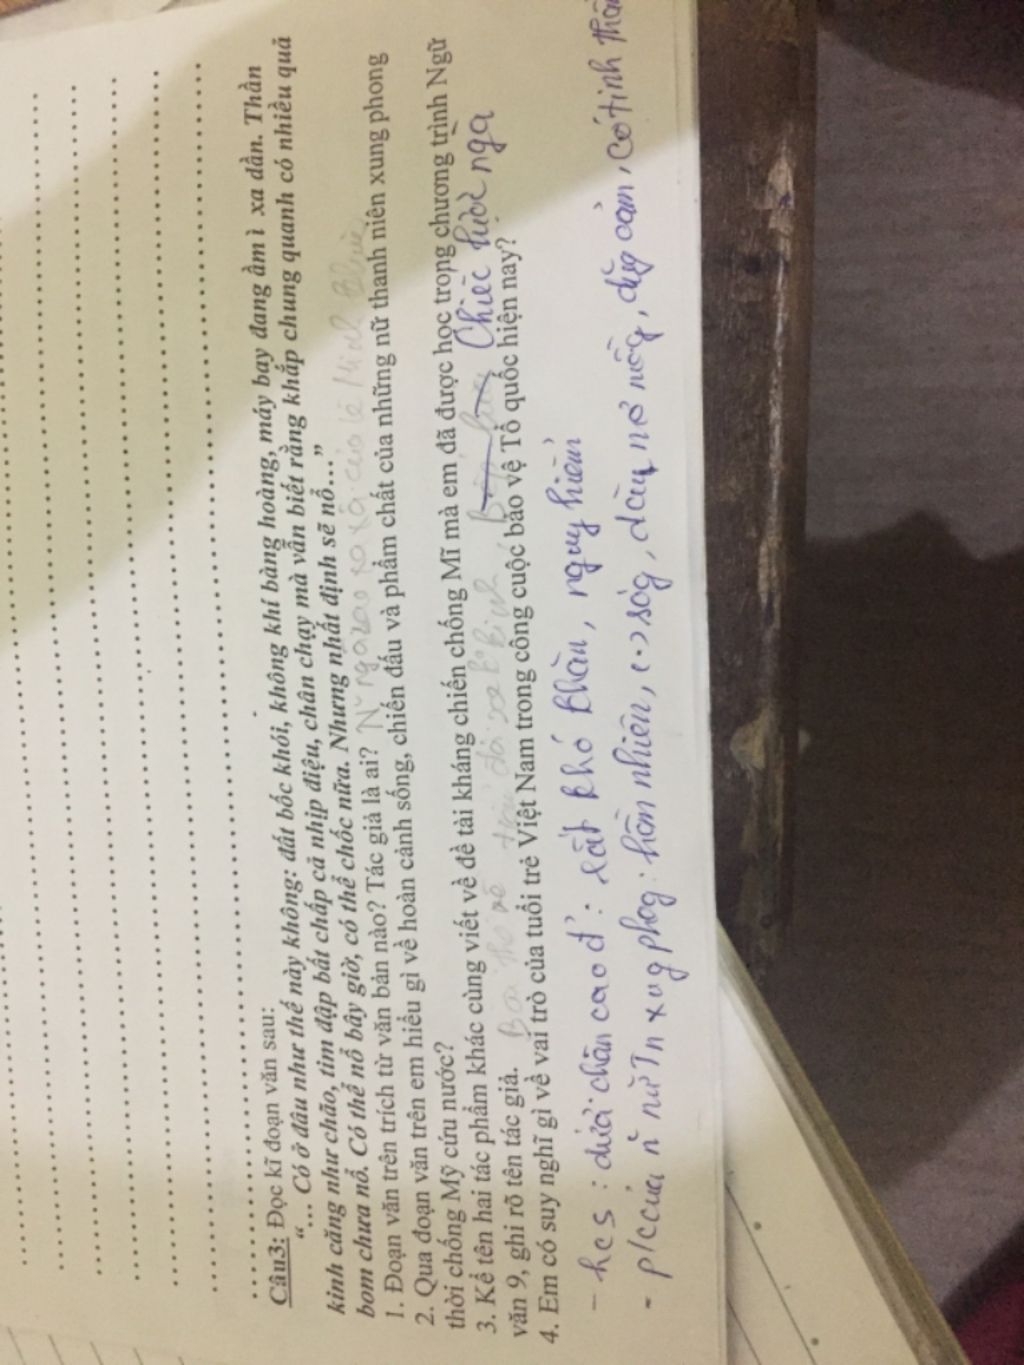 Câu3: Đọc kĩ đoạn văn sau:
“… Có ở đâu như thế này không: đất bốc khói, không khí bàng hoàng, máy bay đang ầm ì xa dần. Thần
kinh căng như chão, tim đập bất chấp cả nhịp điệu, chân chạy mà vẫn biết rằng khắp chung quanh có nhiều quả
bom chưa nổ. Có thể nổ bây giờ, có thể chốc nữa. Nhưng nhất định sẽ nổ…”
1. Đoạn văn trên trích từ văn bản nào? Tác giả là ai? N~ ngôi sao xa xôi của Lê Minh Khuê
2. Qua đoạn văn trên em hiểu gì về hoàn cảnh sống, chiến đấu và phẩm chất của những nữ thanh niên xung phong
thời chống Mỹ cứu nước?
3. Kể tên hai tác phẩm khác cùng viết về đề tài kháng chiến chống Mĩ mà em đã được học trong chương trình Ngữ
văn 9, ghi rõ tên tác giả. Bài thơ về tiểu đội xe k° kính Chiếc lược ngà
4. Em có suy nghĩ gì về vai trò của tuổi trẻ Việt Nam trong công cuộc bảo vệ Tổ quốc hiện nay?
- hcs: dưới chân cao đ': rất khó khăn, nguy hiểm
- p/c của n~ nữ Tn xug phog: hồn nhiên, sóg, dũg cảm, có tinh thần